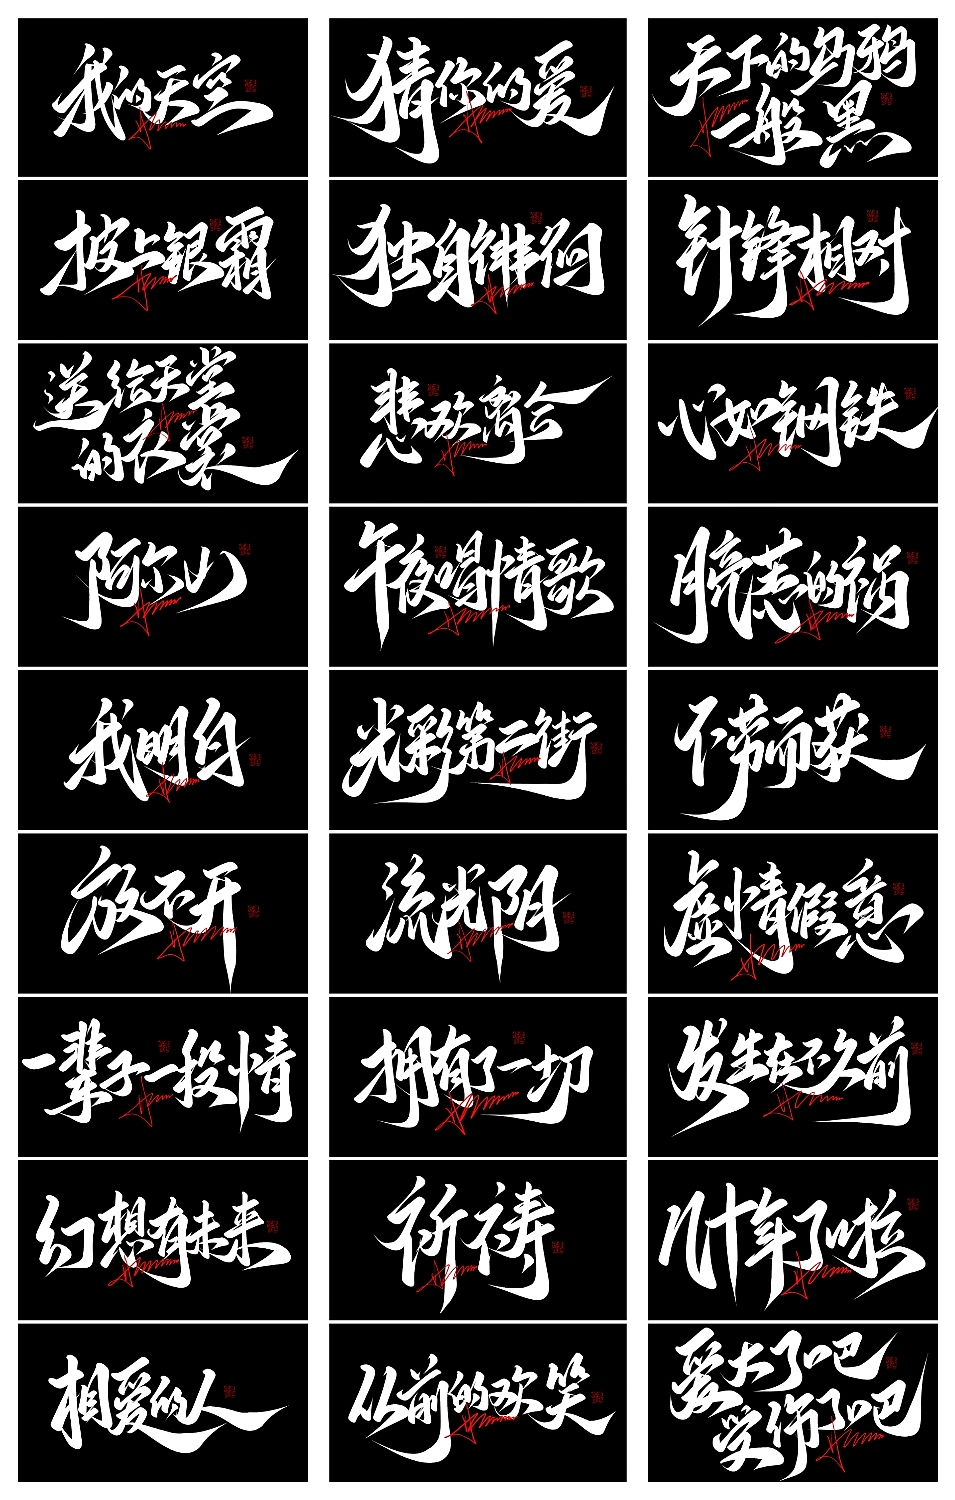 我的天空
猜你的爱
天下的乌鸦
一般黑
披上银霜
独自徘徊
针锋相对
送给天堂
的衣裳
悲欢离合
心如钢铁
阿尔山
午夜唱情歌
膀志的祸
我明白
光彩第二街
不劳而获
放不开
流光阴
虚情假意
一辈子一段情
拥有了一切
发生在不久前
幻想有未来
祈祷
几十年了啦
相爱的人
从前的欢笑
爱大了吧
受伤了吧